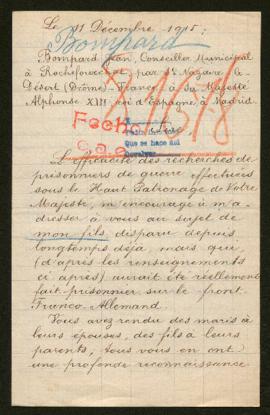 Le 11 Décembre 1915:
Bompard
Bompard Jean, Conseiller Municipal
à Rochefourchat, par St Nazaire le
Désert (Drôme-France) à sa Majesté
Alphonse XIII roi d'Espagne, à Madrid.
Que se hace aquí
L'efficacité des recherches de
prisonniers de guerre effectuées
sous le Haut Patronage de Votre
Majesté, m'encourage à m'a-
dresser à vous au sujet de
mon fils, disparu depuis
longtemps déjà mais qui,
(d'après les renseignements
ci après) aurait été réellement
fait prisonnier sur le front
Franco-Allemand.
Vous avez rendu des maris à
leurs épouses, des fils à leurs
parents, tous vous en ont
une profonde reconnaissance